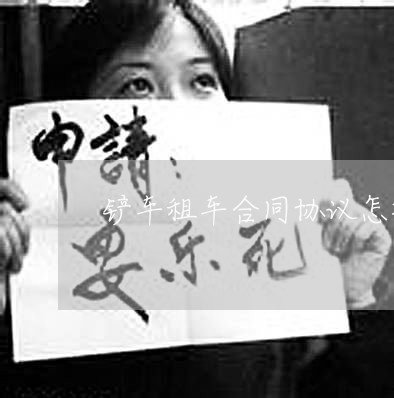 申請：
铲车租车合同协议怎
安乐死